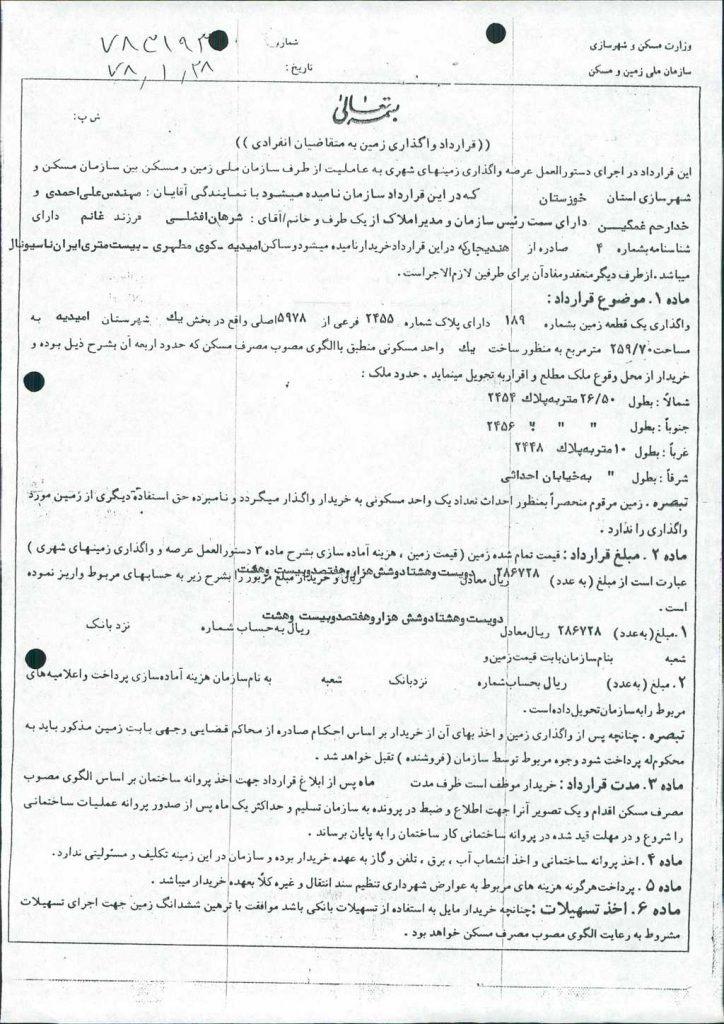 وزارت مسکن و شهرسازی
سازمان ملی زمین و مسکن
شماره
تاریخ : ۷۸,۱,۲۸
بسمه تعالی
ش پ :
((قرارداد واگذاری زمین به متقاضیان انفرادی))
این قرارداد در اجرای دستورالعمل عرصه واگذاری زمینهای شهری به عاملیت از طرف سازمان ملی زمین و مسکن بین سازمان مسکن و
شهرسازی استان خوزستان که در این قرارداد سازمان نامیده میشود با نمایندگی آقایان : مهندس علی احمدی و
خدارحم غمگین دارای سمت رئیس سازمان و مدیر املاک از یک طرف و خانم/آقای : شرهان افضلی فرزند غانم دارای
شناسنامه بشماره ۴ صادره از هندیجان که در این قرارداد خریدار نامیده میشود و ساکن امیدیه ـ کوی مطهری ـ بیست متری ایران ناسیونال
میباشد . از طرف دیگر منعقد و مفاد آن برای طرفین لازم الاجر است .
ماده ۱ . موضوع قرارداد :
واگذاری یک قطعه زمین بشماره ۱۸۹ دارای پلاک شماره ۲۴۵۵ فرعی از ۵۹۷۸ اصلی واقع در بخش یك شهرستان امیدیه به
مساحت ۲۵۹/۷۰ مترمربع به منظور ساخت یك واحد مسکونی منطبق با الگوی مصوب مصرف مسکن که حدود اربعه آن بشرح ذیل بوده و
خریدار از محل وقوع ملک مطلع و اقرار به تحویل مینماید . حدود ملک :
شمالاً : بطول ۲۶/۵۰ متر به پلاك ۲۴۵۴
جنوباً : بطول " " " ۲۴۵۶
غرباً : بطول ۱۰ متر به پلاك ۲۴۴۸
شرقاً : بطول " به خیابان احداثی
تبصره . زمین مرقوم منحصراً بمنظور احداث تعداد یک واحد مسکونی به خریدار واگذار میگردد و نامبرده حق استفاده دیگری از زمین مورد
واگذاری را ندارد .
ماده ۲ . مبلغ قرارداد : قیمت تمام شده زمین ( قیمت زمین ، هزینه آماده سازی بشرح ماده ۳ دستورالعمل عرصه و واگذاری زمینهای شهری )
عبارت است از مبلغ ( به عدد ) ۲۸۶۷۲۸ ریال معادل دویست و هشتاد و شش هزار و هفتصد و بیست و هشت ریال و خریدار مبلغ مزبور را بشرح زیر به حسابهای مربوط واریز نموده
است .
۱ . مبلغ ( به عدد ) ۲۸۶۷۲۸ ریال معادل دویست و هشتاد و شش هزار و هفتصد و بیست و هشت ریال به حساب شماره نزد بانک
شعبه بنام سازمان بابت قیمت زمین و
۲ . مبلغ ( به عدد ) ریال بحساب شماره نزد بانک شعبه به نام سازمان هزینه آماده سازی پرداخت و اعلامیه های
مربوط را به سازمان تحویل داده است .
تبصره . چنانچه پس از واگذاری زمین و اخذ بهای آن از خریدار بر اساس احکام صادره از محاکم قضایی وجهی بابت زمین مذکور باید به
محکوم له پرداخت شود وجوه مربوط توسط سازمان ( فروشنده ) تقبل خواهد شد .
ماده ۳ . مدت قرارداد : خریدار موظف است ظرف مدت ماه پس از ابلاغ قرارداد جهت اخذ پروانه ساختمان بر اساس الگوی مصوب
مصرف مسکن اقدام و یک تصویر آنرا جهت اطلاع و ضبط در پرونده به سازمان تسلیم و حداکثر یک ماه پس از صدور پروانه عملیات ساختمانی
را شروع و در مهلت قید شده در پروانه ساختمانی کار ساختمان را به پایان برساند .
ماده ۴ . اخذ پروانه ساختمانی و اخذ انشعاب آب ، برق ، تلفن و گاز به عهده خریدار بوده و سازمان در این زمینه تکلیف و مسئولیتی ندارد .
ماده ۵ . پرداخت هرگونه هزینه های مربوط به عوارض شهرداری تنظیم سند انتقال و غیره کلاً بعهده خریدار میباشد .
ماده ۶ . اخذ تسهیلات : چنانچه خریدار مایل به استفاده از تسهیلات بانکی باشد موافقت با ترهین ششدانگ زمین جهت اجرای تسهیلات
مشروط به رعایت الگوی مصوب مصرف مسکن خواهد بود .